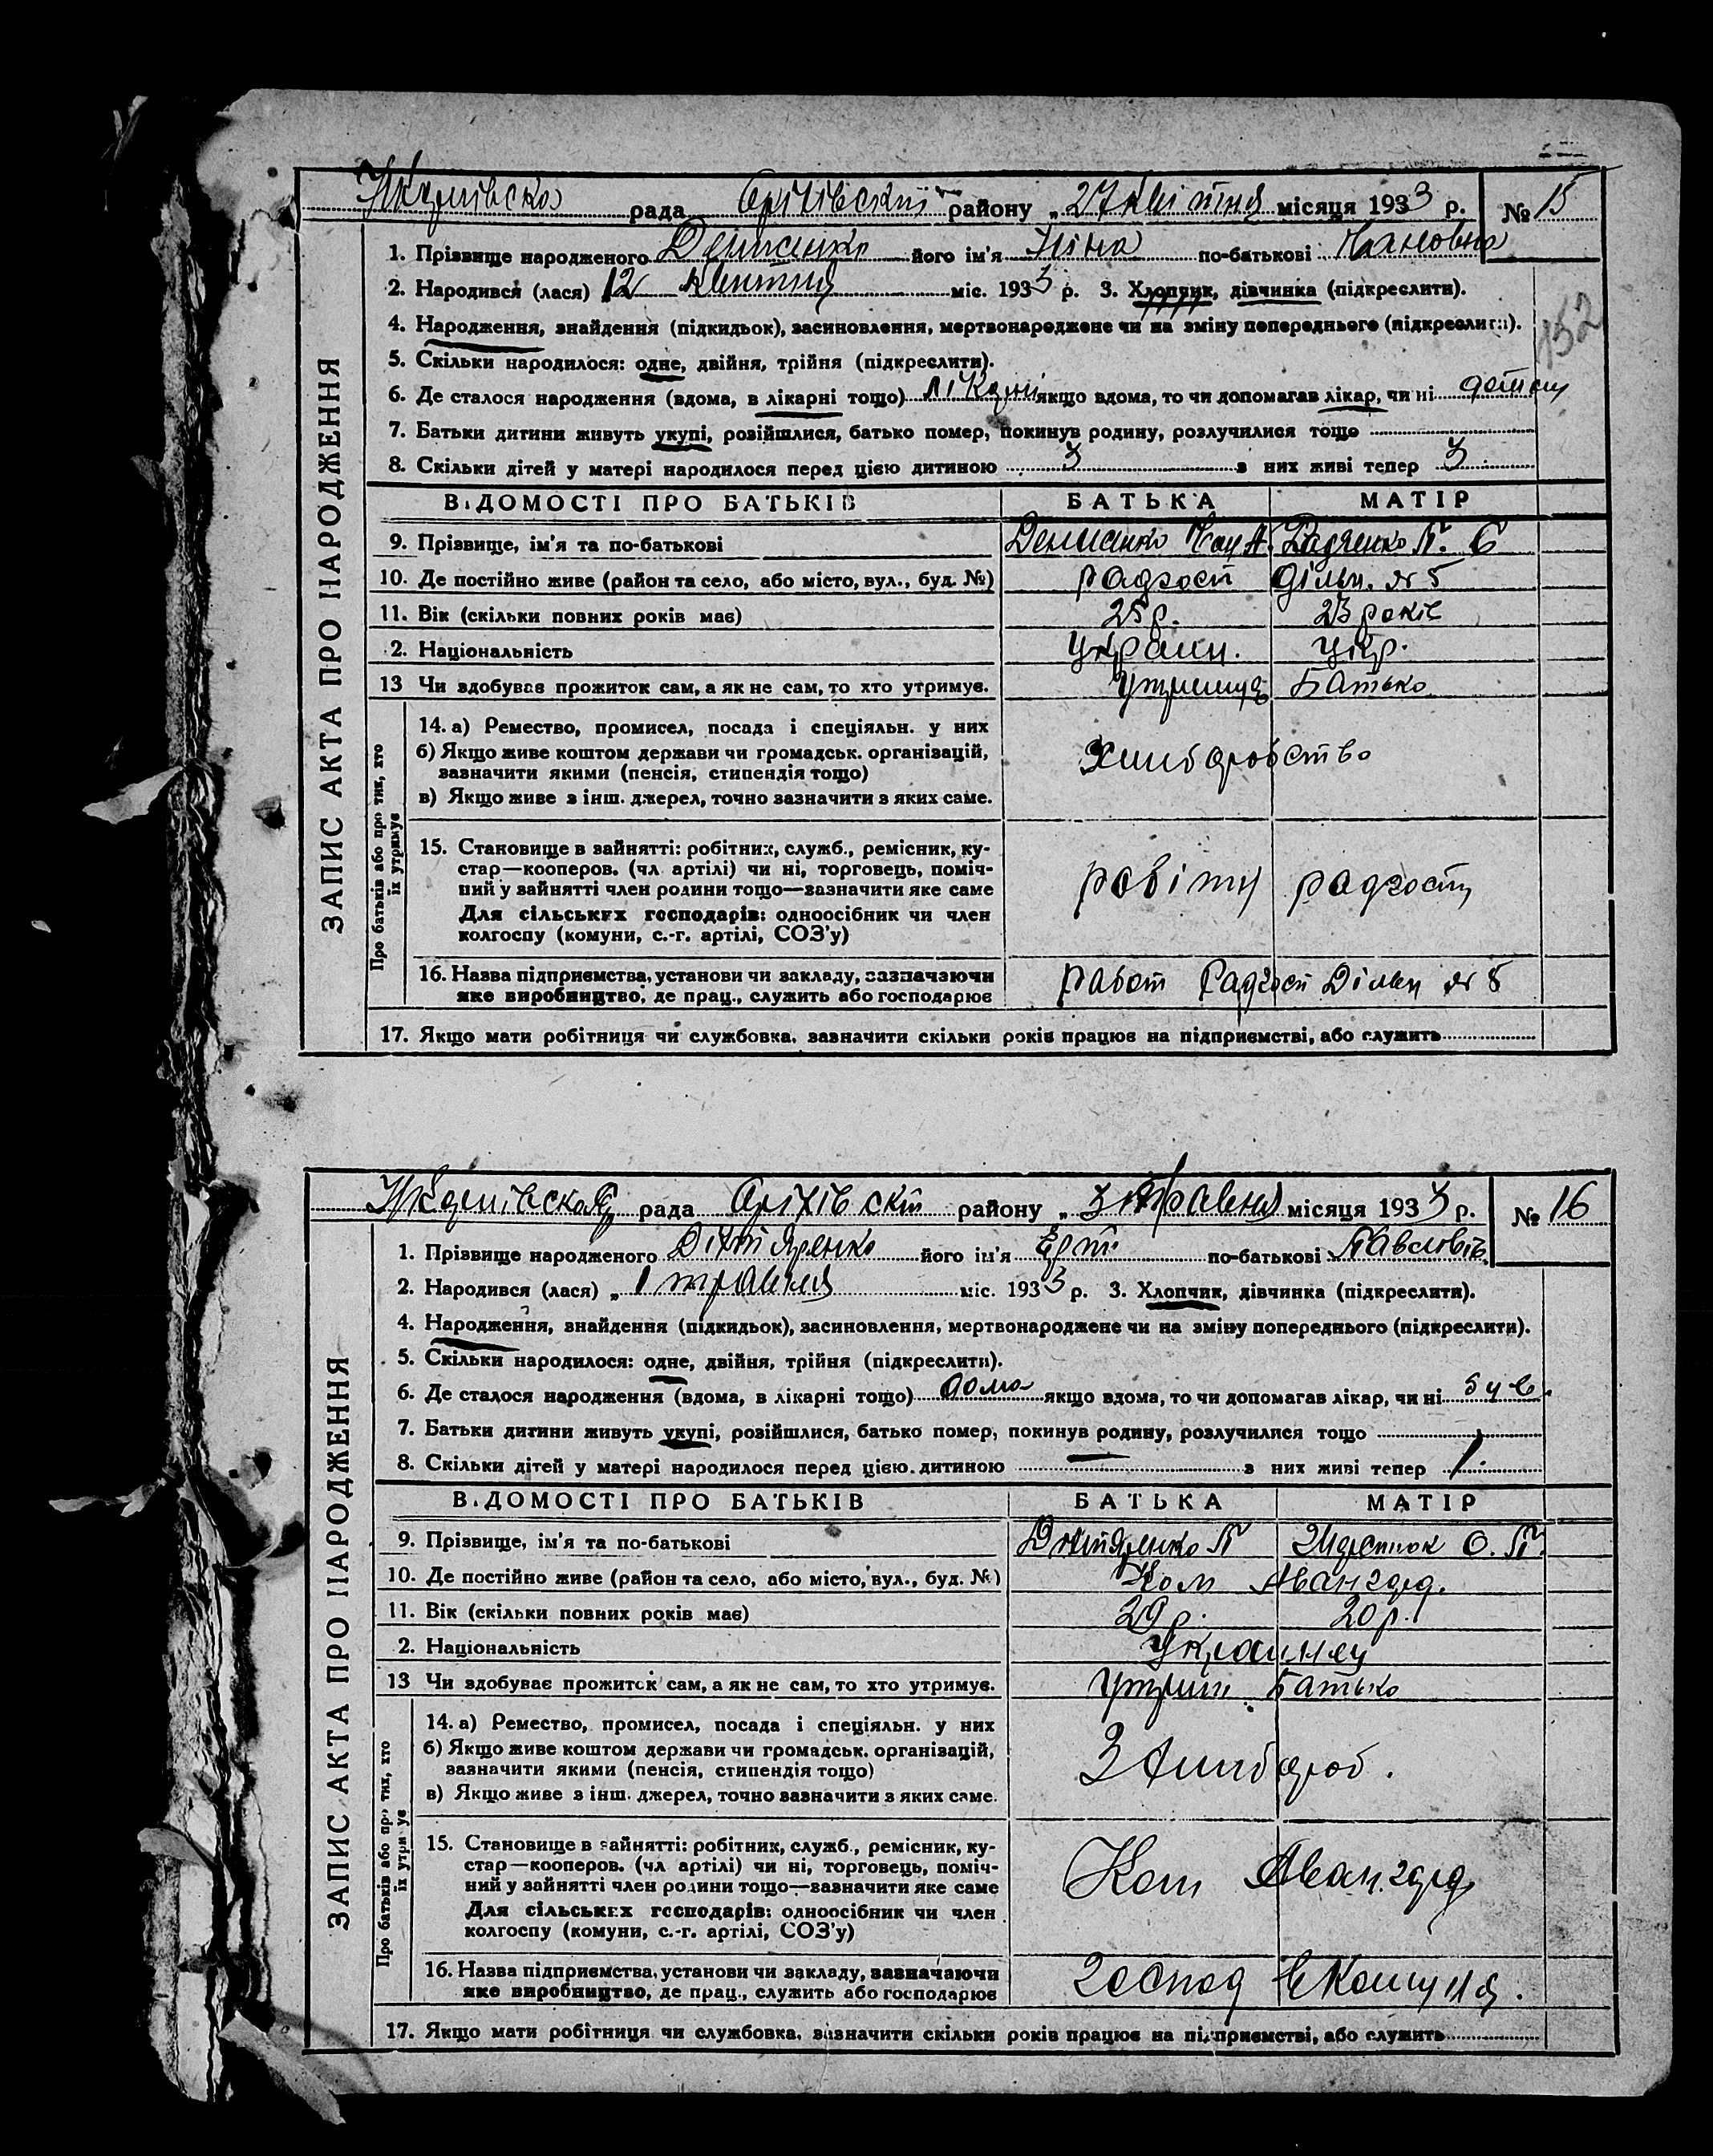 рада Оріхівський району „ 27 квітня місяця 1933 р. № 15
152
1. Прізвище народженого його ім'я Ніна по-батькові Івановна
2. Народився (лася) 12 квітня міс. 1933 р. 3. Хлопчик, дівчинка (підкреслити).
4. Народження, знайдення (підкидьок), засиновлення, мертвонароджене чи на зміну попереднього (підкреслити).
5. Скільки народилося: одне, двійня, трійня (підкреслити).
6. Де сталося народження (вдома, в лікарні тощо) якщо вдома, то чи допомагав лікар, чи ні
7. Батьки дитини живуть укупі, розійшлися, батько помер, покинув родину, розлучилися тощо
8. Скільки дітей у матері народилося перед цією дитиною 3 з них живі тепер 3
ВІДОМОСТІ ПРО БАТЬКІВ БАТЬКА МАТІР
9. Прізвище, ім'я та по-батькові
10. Де постійно живе (район та село, або місто, вул., буд. №) радгосп дільн. № 5
11. Вік (скільки повних років має) 25 р. 23 років
2. Національність Україн. укр.
13 Чи здобуває прожиток сам, а як не сам, то хто утримує. Утримує Батько
14. а) Ремество, промисел, посада і спеціяльн. у них
б) Якщо живе коштом держави чи громадськ. організацій,
зазначити якими (пенсія, стипендія тощо)
в) Якщо живе з інш. джерел, точно зазначити з яких саме.
Хліборобство
15. Становище в зайнятті: робітник, служб., ремісник, ку-
стар—кооперов. (чл. артілі) чи ні, торговець, поміч-
ний у зайнятті член родини тощо—зазначити яке саме
Для сільських господарів: одноосібник чи член
колгоспу (комуни, с.-г. артілі, СОЗ'у)
робітн радгоспу
16. Назва підприємства, установи чи закладу, зазначаючи
яке виробництво, де прац., служить або господарює
Работ Радгосп Дільн № 5
17. Якщо мати робітниця чи службовка, зазначити скільки років працює на підприємстві, або служить
ЗАПИС АКТА ПРО НАРОДЖЕННЯ
Про батьків або про тих, хто
їх утримує
рада Оріхівський району „ 3 травня місяця 1933 р. № 16
1. Прізвище народженого його ім'я по-батькові Павловіч
2. Народився (лася) „ 1 травня міс. 1933 р. 3. Хлопчик, дівчинка (підкреслити).
4. Народження, знайдення (підкидьок), засиновлення, мертвонароджене чи на зміну попереднього (підкреслити).
5. Скільки народилося: одне, двійня, трійня (підкреслити).
6. Де сталося народження (вдома, в лікарні тощо) дома якщо вдома, то чи допомагав лікар, чи ні був
7. Батьки дитини живуть укупі, розійшлися, батько помер, покинув родину, розлучилися тощо
8. Скільки дітей у матері народилося перед цією дитиною — з них живі тепер 1
ВІДОМОСТІ ПРО БАТЬКІВ БАТЬКА МАТІР
9. Прізвище, ім'я та по-батькові
10. Де постійно живе (район та село, або місто, вул., буд. №) Ком Авангард.
11. Вік (скільки повних років має) 29 р. 20 р.
2. Національність Українці
13 Чи здобуває прожиток сам, а як не сам, то хто утримує. Утрим Батько
14. а) Ремество, промисел, посада і спеціяльн. у них
б) Якщо живе коштом держави чи громадськ. організацій,
зазначити якими (пенсія, стипендія тощо)
в) Якщо живе з інш. джерел, точно зазначити з яких саме.
З хлібороб.
15. Становище в зайнятті: робітник, служб., ремісник, ку-
стар—кооперов. (чл. артілі) чи ні, торговець, поміч-
ний у зайнятті член родини тощо—зазначити яке саме
Для сільських господарів: одноосібник чи член
колгоспу (комуни, с.-г. артілі, СОЗ'у)
Ком Авангард
16. Назва підприємства, установи чи закладу, зазначаючи
яке виробництво, де прац., служить або господарює
Господ в Комуні.
17. Якщо мати робітниця чи службовка, зазначити скільки років працює на підприємстві, або служить
ЗАПИС АКТА ПРО НАРОДЖЕННЯ
Про батьків або про тих, хто
їх утримує